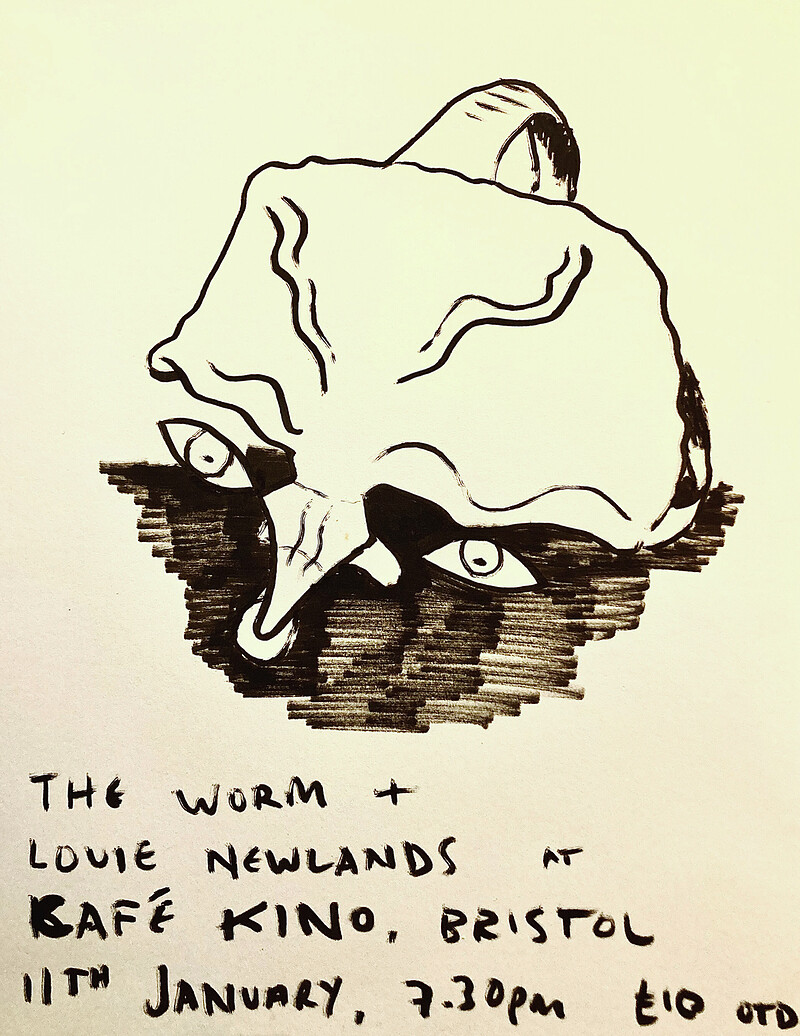 THE WORM +
LOUIE NEWLANDS AT
KAFÉ KINO, BRISTOL
11TH JANUARY, 7.30pm £10 OTD